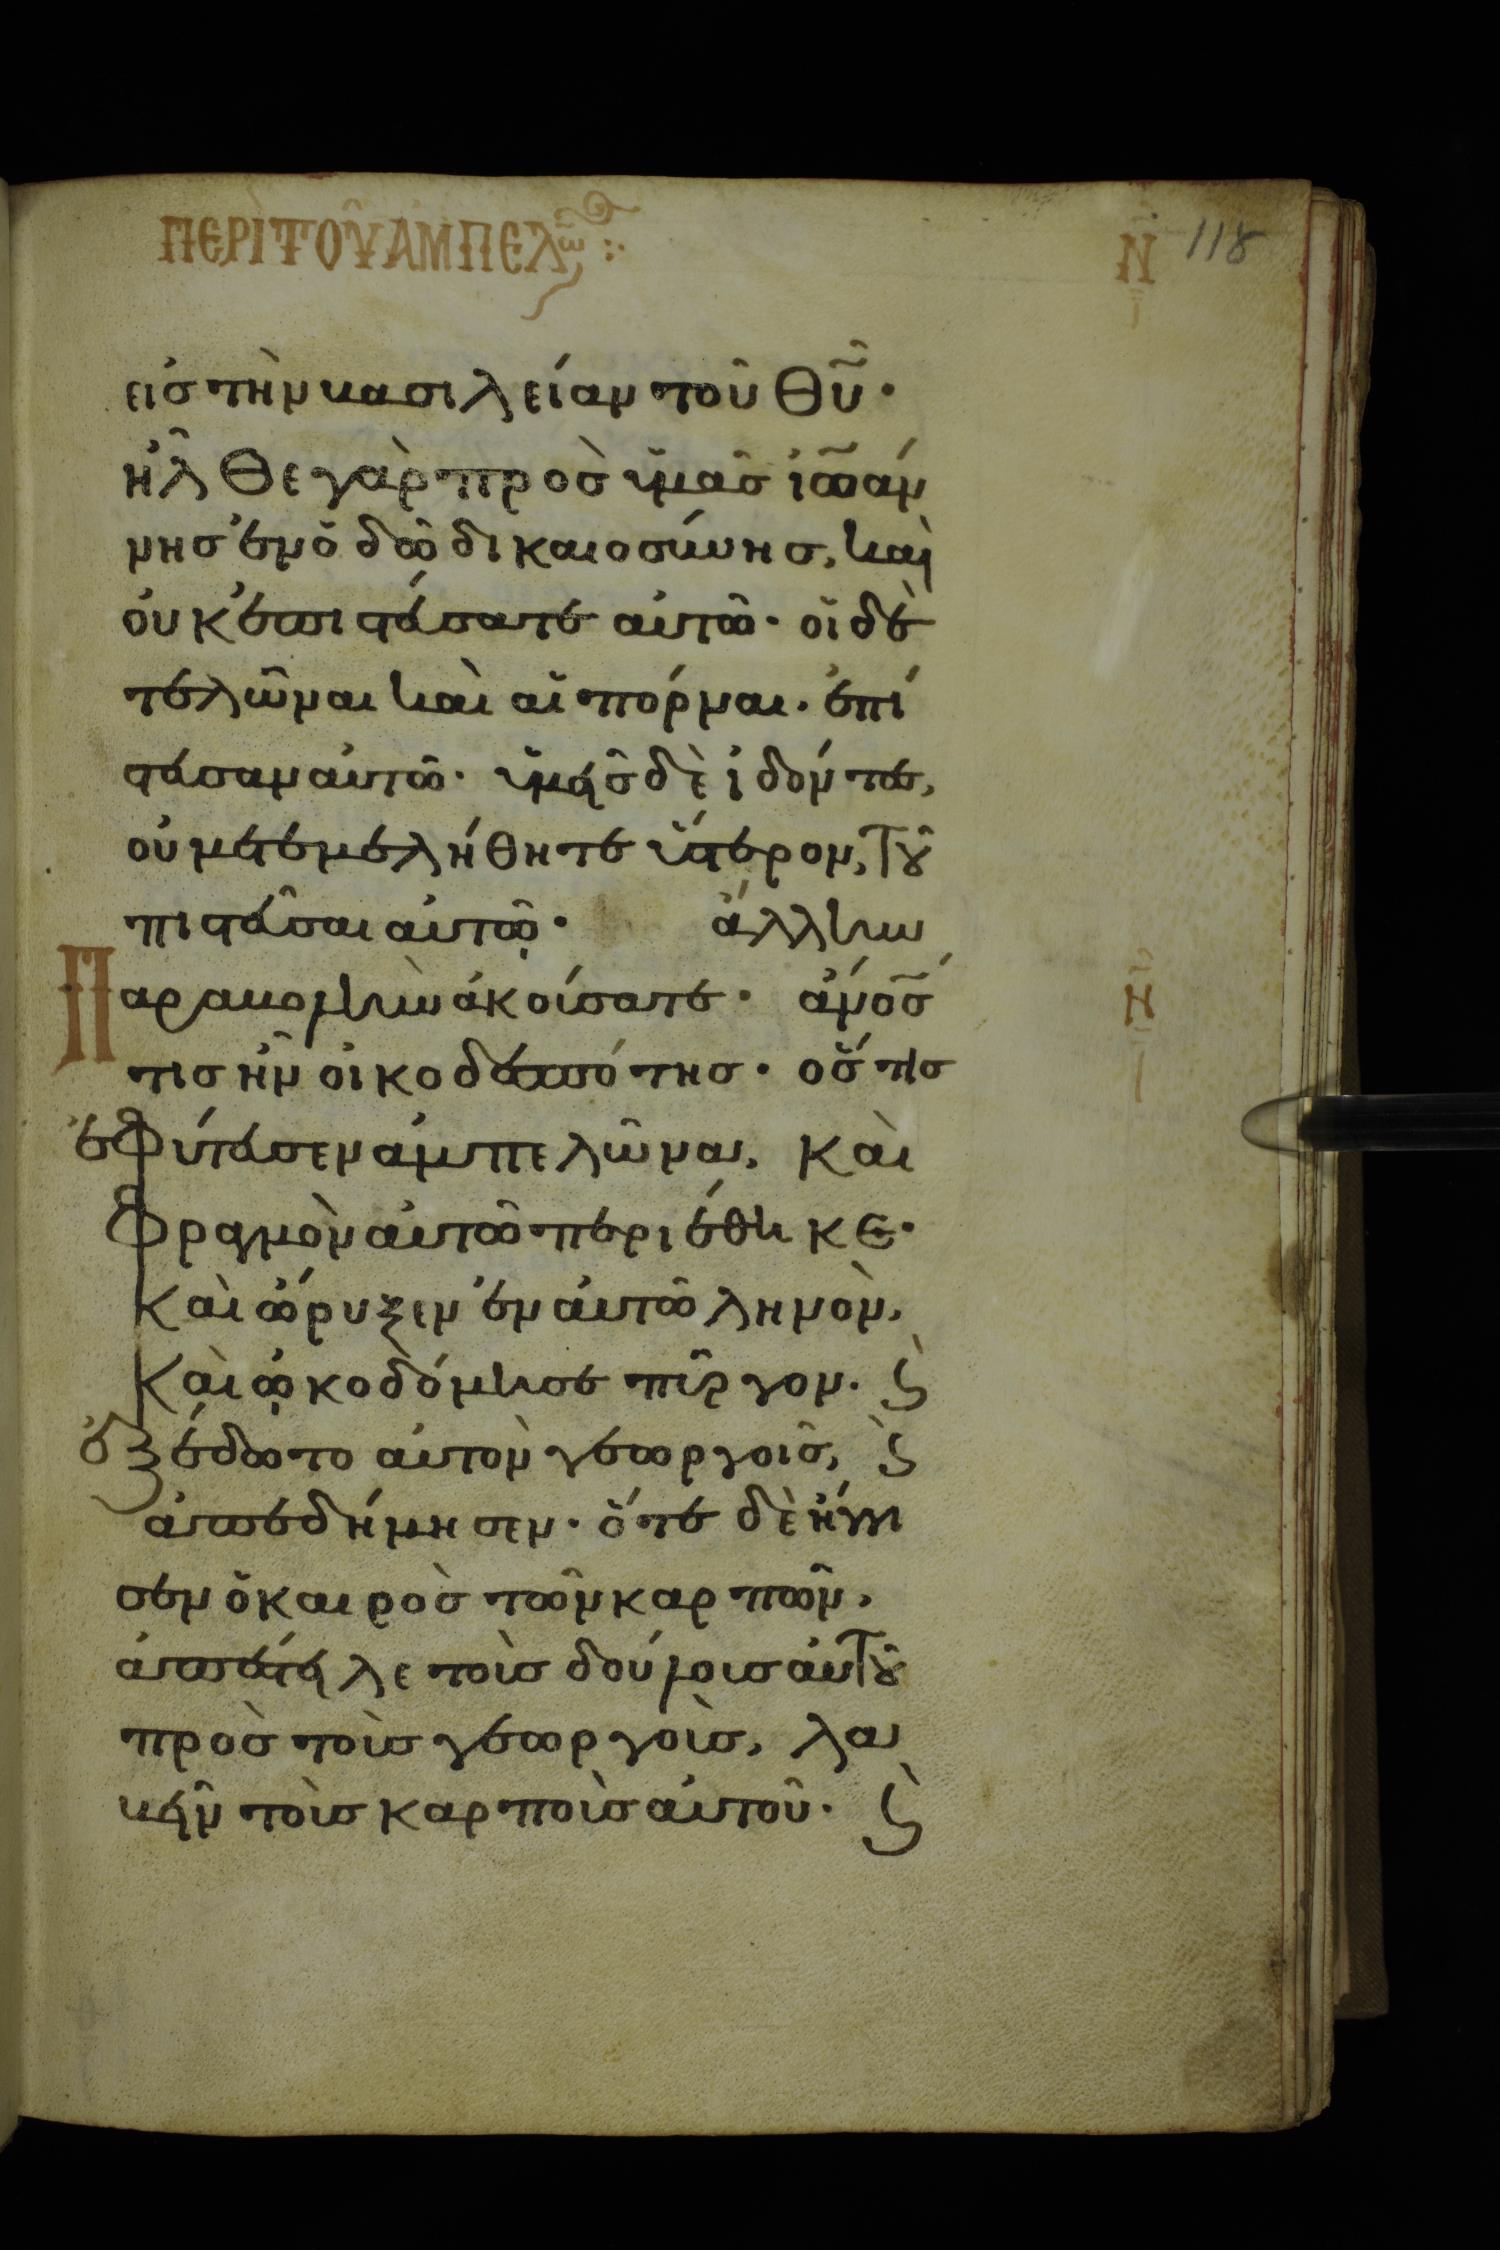 ΠΕΡῚ ΤΟΥ͂ ἈΜΠΕΛῶ̅ :·
Ν̅
118
εἰς τὴν βασιλείαν τοῦ θ̅υ̅·
ἦλθε γὰρ πρὸς ὑμᾶς ἰωάν
νης ἐν ὁδῶ δικαιοσύνης, καὶ
οὐκ ἐπιστεύσατε αὐτῶ· οἱ δὲ
τελῶναι καὶ αἱ πόρναι· ἐπί
στευσαν αὐτῶ· ὑμεῖς δὲ ἰδόντες,
οὐ μετεμελήθητε ὕστερον, τοῦ
πιστεῦσαι αὐτῷ· ἄλλην
Παραβολὴν ἀκούσατε· ἀν̅ο̅ς̅
τις ἦν οἰκοδεσπότης· ὅστις
ἐφύτευσεν ἀμπελῶνα, καὶ
φραγμὸν αὐτῶ περιέθηκε·
καὶ ὤρυξεν ἐν αὐτῶ ληνὸν,
καὶ ᾠκοδόμησε πύργον· ϛ̀
ἐξέδωτο αὐτὸν γεωργοῖς, ϛ̀
ἀπεδήμησεν· ὅτε δὲ ἤγγι
σεν ὁ καιρὸς τῶν καρπῶν,
ἀπέστειλε τοὺς δούλους αὐτοῦ
πρὸς τοὺς γεωργοὺς, λα
βεῖν τοὺς καρποὺς αὐτοῦ· ϛ̀